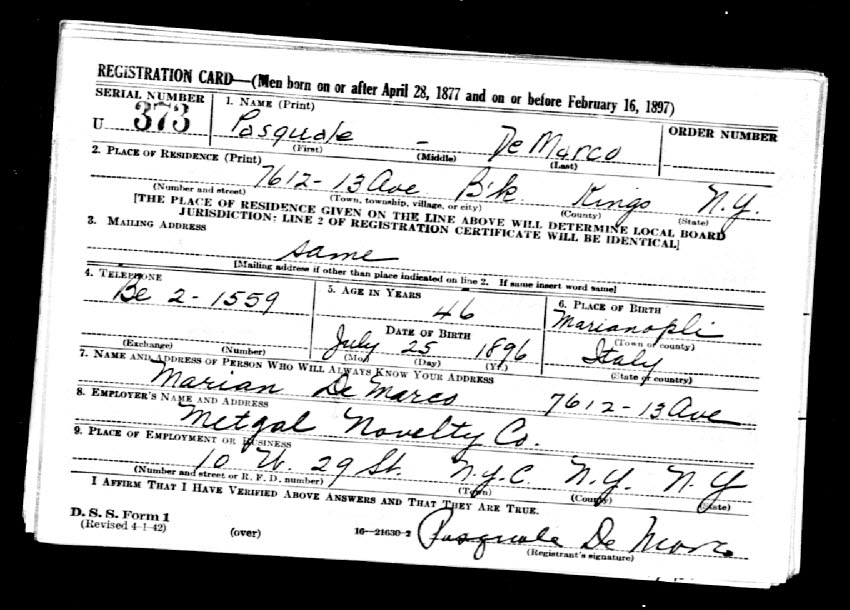 REGISTRATION CARD—(Men born on or after April 28, 1877 and on or before February 16, 1897)
SERIAL NUMBER 1. NAME (Print) ORDER NUMBER
U 373 Pasquale - De Marco
(First) (Middle) (Last)
2. PLACE OF RESIDENCE (Print)
7612-13 Ave B'k. Kings N.Y.
(Number and street) (Town, township, village, or city) (County) (State)
[THE PLACE OF RESIDENCE GIVEN ON THE LINE ABOVE WILL DETERMINE LOCAL BOARD
JURISDICTION; LINE 2 OF REGISTRATION CERTIFICATE WILL BE IDENTICAL]
3. MAILING ADDRESS
same
[Mailing address if other than place indicated on line 2. If same insert word same]
4. TELEPHONE 5. AGE IN YEARS 6. PLACE OF BIRTH
Be 2-1559 46 Marianopli
DATE OF BIRTH (Town or county)
July 25 1896 Italy
(Exchange) (Number) (Mo.) (Day) (Yr.) (State or country)
7. NAME AND ADDRESS OF PERSON WHO WILL ALWAYS KNOW YOUR ADDRESS
Marian De Marco 7612-13 Ave
8. EMPLOYER'S NAME AND ADDRESS
Metgal Novelty Co.
9. PLACE OF EMPLOYMENT OR BUSINESS
10 W. 29 St. N.Y.C. N.Y. N.Y
(Number and street or R. F. D. number) (Town) (County) (State)
I AFFIRM THAT I HAVE VERIFIED ABOVE ANSWERS AND THAT THEY ARE TRUE.
D. S. S. Form 1
(Revised 4-1-42) (over) 16—21630-2 Pasquale De Marco
(Registrant's signature)